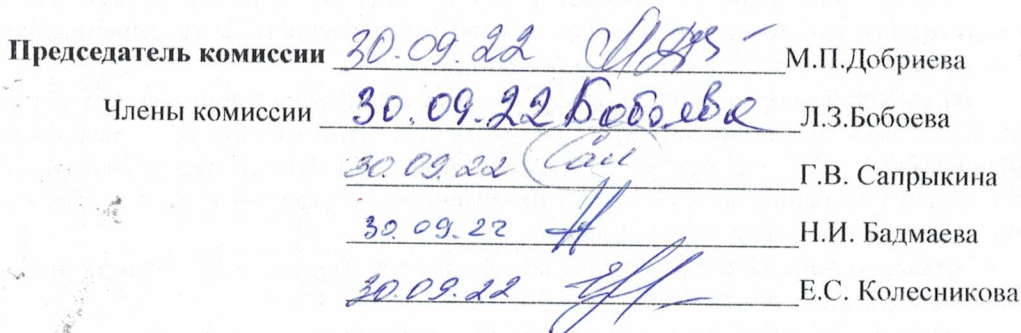 Председатель комиссии 30.09.22 М.П.Добриева
Члены комиссии 30.09.22 Бобоева Л.З.Бобоева
30.09.22 Сап Г.В. Сапрыкина
30.09.22 Н.И. Бадмаева
30.09.22 Е.С. Колесникова